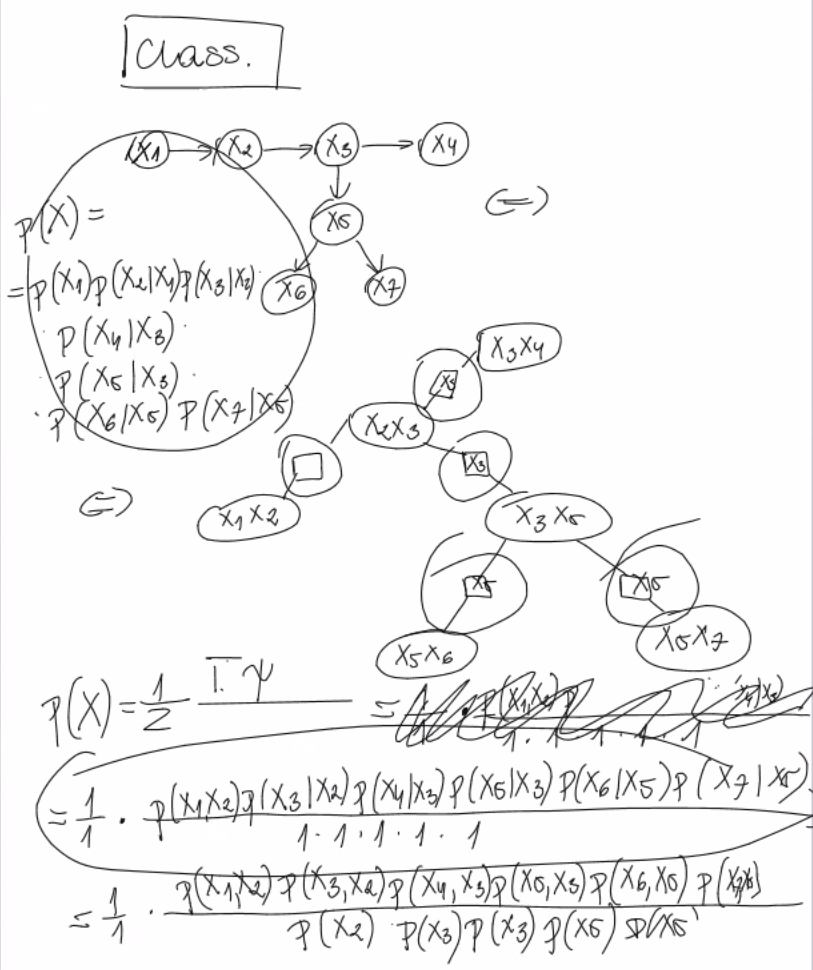 Class.
X1 X2 X3 X4
P(X) =
X5
⇔
= P(X1)P(X2|X1)P(X3|X2)· X6 X7
P(X4|X3)·
· P(X5|X3)·
· P(X6|X5) P(X7|X5)
X3X4
X3
X2X3
X3
⇔
X1X2
X3X5
X5 X5
X5X6 X5X7
P(X) = 1/Z Πψ =
= 1/1 · P(X1,X2)P(X3|X2)P(X4|X3)P(X5|X3)P(X6|X5)P(X7|X5) / 1·1·1·1·1
= 1/1 · P(X1,X2)P(X3,X2)P(X4,X3)P(X5,X3)P(X6,X5)P(X7,X5) / P(X2) P(X3)P(X3)P(X5)P(X5)